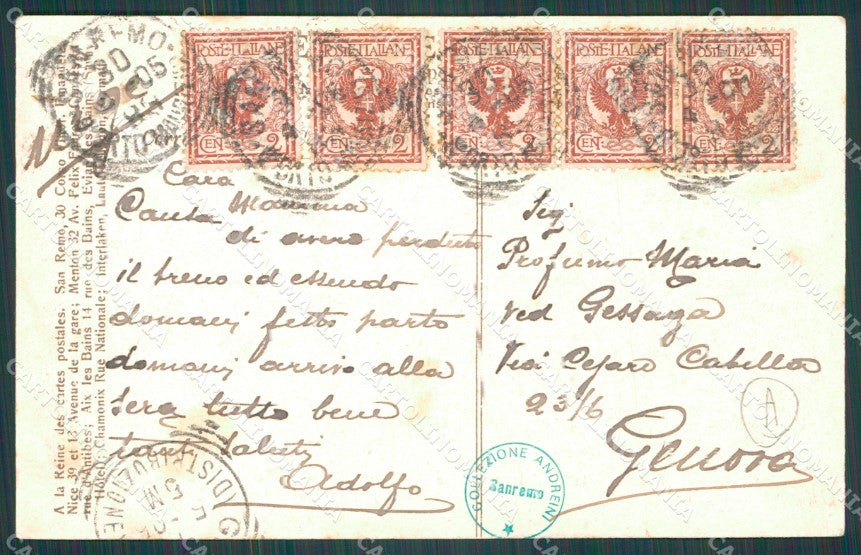 POSTE·ITALIANE
CEN· 2
POSTE·ITALIANE
CEN· 2
POSTE·ITALIANE
CEN· 2
POSTE·ITALIANE
CEN· 2
POSTE·ITALIANE
CEN· 2
Cara
Mamma
Causa di avere perduto
il treno ed essendo
domani
domani arrivo alla
sera tutto bene
tanti saluti
Adolfo
Sig
Profumo Maria
ved Gessaga
Via Cesare Cabella
23/6
Genova
A
COLLEZIONE ANDREINI
Sanremo
(DISTRIBUZIONE
A la Reine des cartes postales. San Remo, 30 Corso
Nice 39 et 13 Avenue de la gare; Menton 32 Av. Felix
rue d'Antibes; Aix les Bains 14 rue des Bains, Evian les Bains
Hôtel; Chamonix Rue Nationale; Interlaken,
CARTOLINOMANIA